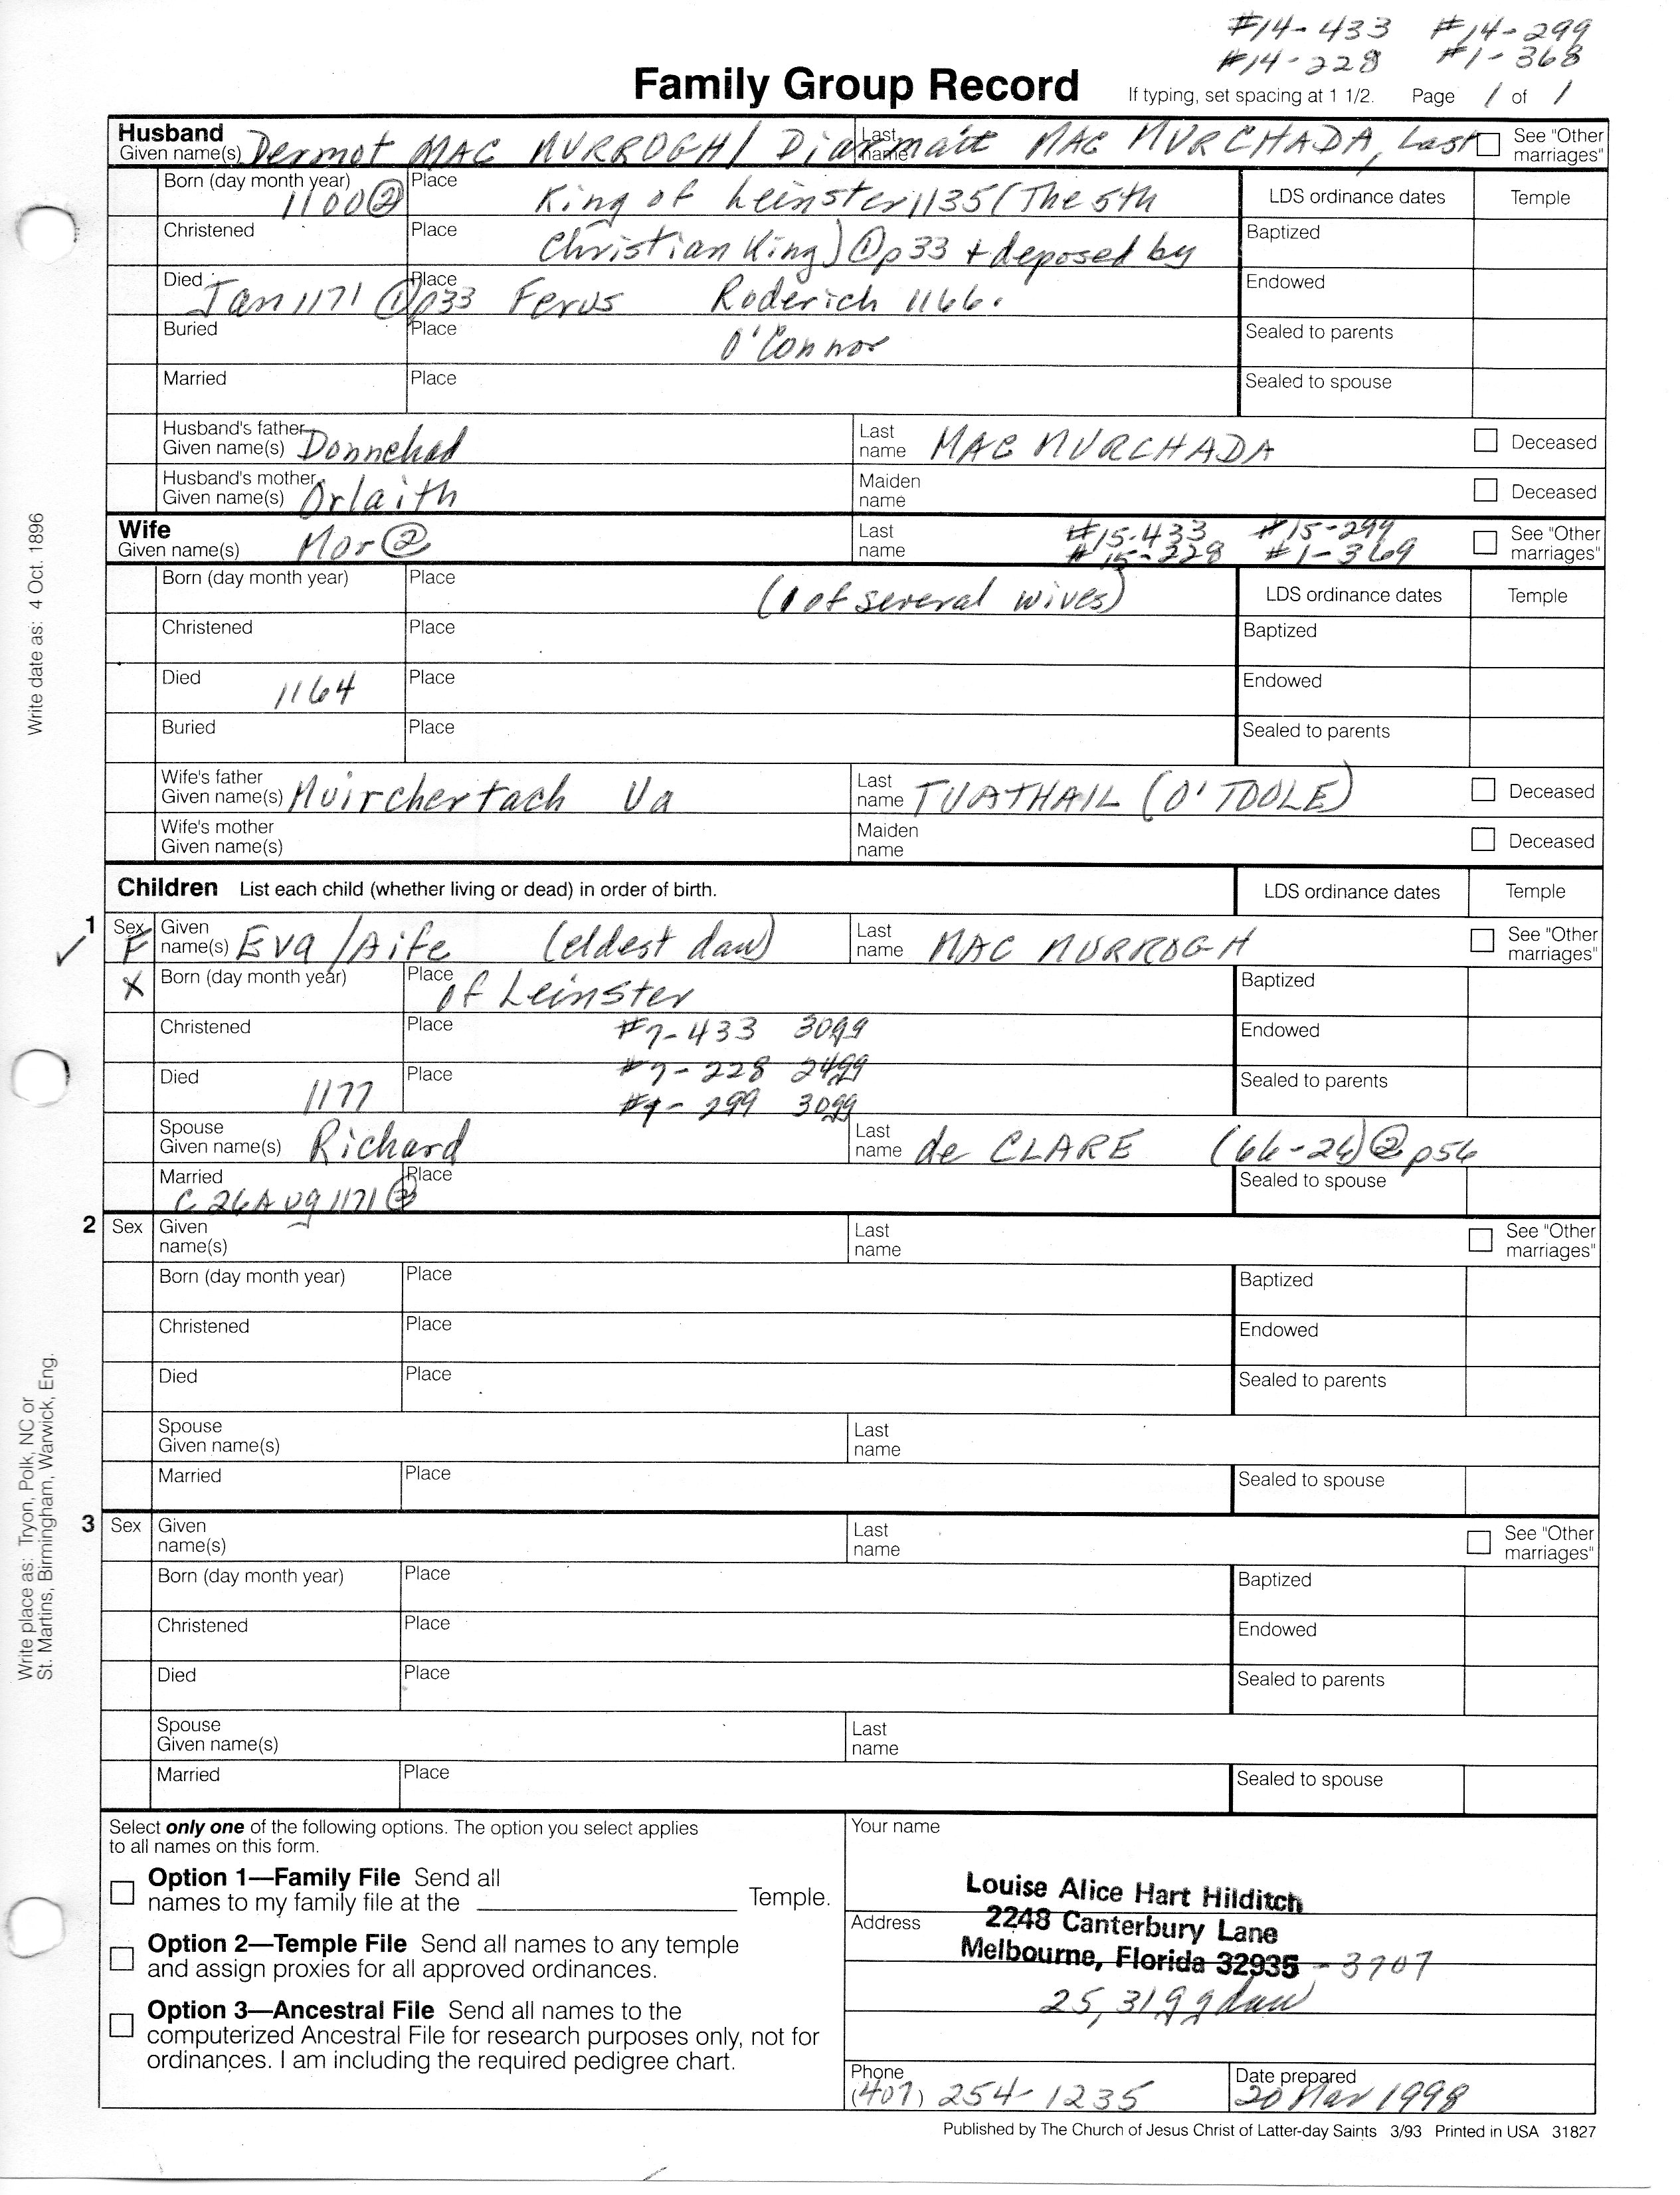 #14-433 #14-299
#14-228 #1-368
Family Group Record If typing, set spacing at 1 1/2. Page 1 of 1
Husband
Given name(s) Dermot MAC MURROGH / Diarmait MAC MURCHADA, Last Last name See "Other marriages"
Born (day month year) 1100 ② Place King of Leinster 1135 (The 5th LDS ordinance dates Temple
Christened Place Christian King) ① p33 + deposed by Baptized
Died Jan 1171 ① p33 Place Ferus Roderich 1166. Endowed
Buried Place O'Connor Sealed to parents
Married Place Sealed to spouse
Husband's father Given name(s) Donnchad Last name MAC MURCHADA Deceased
Husband's mother Given name(s) Orlaith Maiden name Deceased
Wife
Given name(s) Mor ② Last name #15-433 #15-299 See "Other marriages"
#15-228 #1-369
Born (day month year) Place (1 of several wives) LDS ordinance dates Temple
Christened Place Baptized
Died 1164 Place Endowed
Buried Place Sealed to parents
Wife's father Given name(s) Muirchertach Ua Last name TUATHAIL (O'TOOLE) Deceased
Wife's mother Given name(s) Maiden name Deceased
Children List each child (whether living or dead) in order of birth. LDS ordinance dates Temple
1 Sex F Given name(s) Eva / Aife (eldest dau) Last name MAC MURROGH See "Other marriages"
X Born (day month year) Place of Leinster Baptized
Christened Place #7-433 30gg Endowed
Died 1177 Place #7-228 24gg Sealed to parents
#7-299 30gg
Spouse Given name(s) Richard Last name de CLARE (66-26) ② p56
Married C 26 Aug 1171 ② Place Sealed to spouse
2 Sex Given name(s) Last name See "Other marriages"
Born (day month year) Place Baptized
Christened Place Endowed
Died Place Sealed to parents
Spouse Given name(s) Last name
Married Place Sealed to spouse
3 Sex Given name(s) Last name See "Other marriages"
Born (day month year) Place Baptized
Christened Place Endowed
Died Place Sealed to parents
Spouse Given name(s) Last name
Married Place Sealed to spouse
Select only one of the following options. The option you select applies
to all names on this form.
Option 1—Family File Send all
names to my family file at the Temple.
Option 2—Temple File Send all names to any temple
and assign proxies for all approved ordinances.
Option 3—Ancestral File Send all names to the
computerized Ancestral File for research purposes only, not for
ordinances. I am including the required pedigree chart.
Your name
Louise Alice Hart Hilditch
Address 2248 Canterbury Lane
Melbourne, Florida 32935 - 3707
25, 31 gg dau
Phone (407) 254-1235
Date prepared 20 Mar 1998
Published by The Church of Jesus Christ of Latter-day Saints 3/93 Printed in USA 31827
Write date as: 4 Oct. 1896
Write place as: Tryon, Polk, NC or
St. Martins, Birmingham, Warwick, Eng.